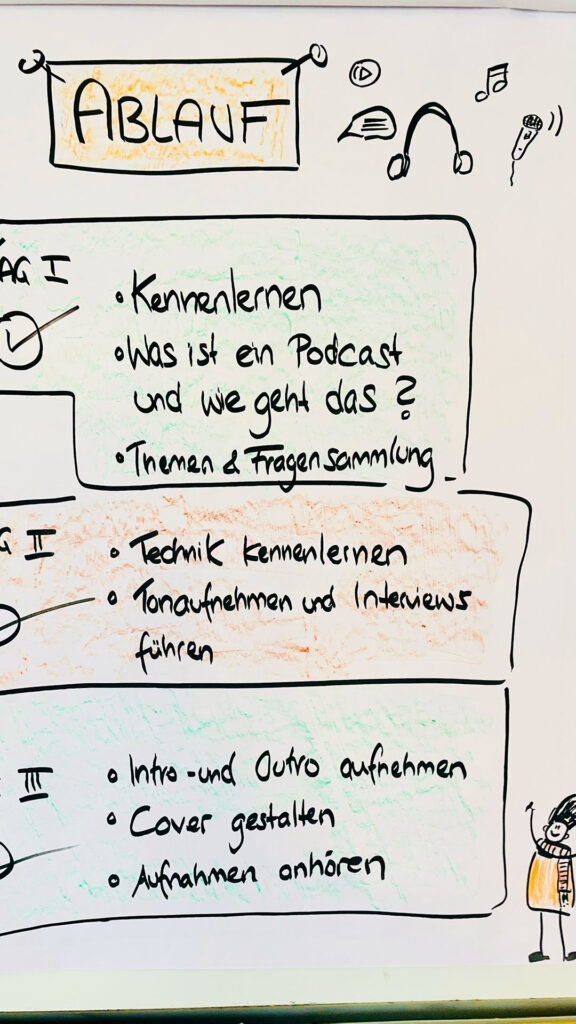 ABLAUF
AG I
• Kennenlernen
• Was ist ein Podcast
und wie geht das?
• Themen & Fragensammlung
G II
• Technik kennenlernen
• Tonaufnehmen und Interviews
führen
III
• Intro-und Outro aufnehmen
• Cover gestalten
• Aufnahmen anhören